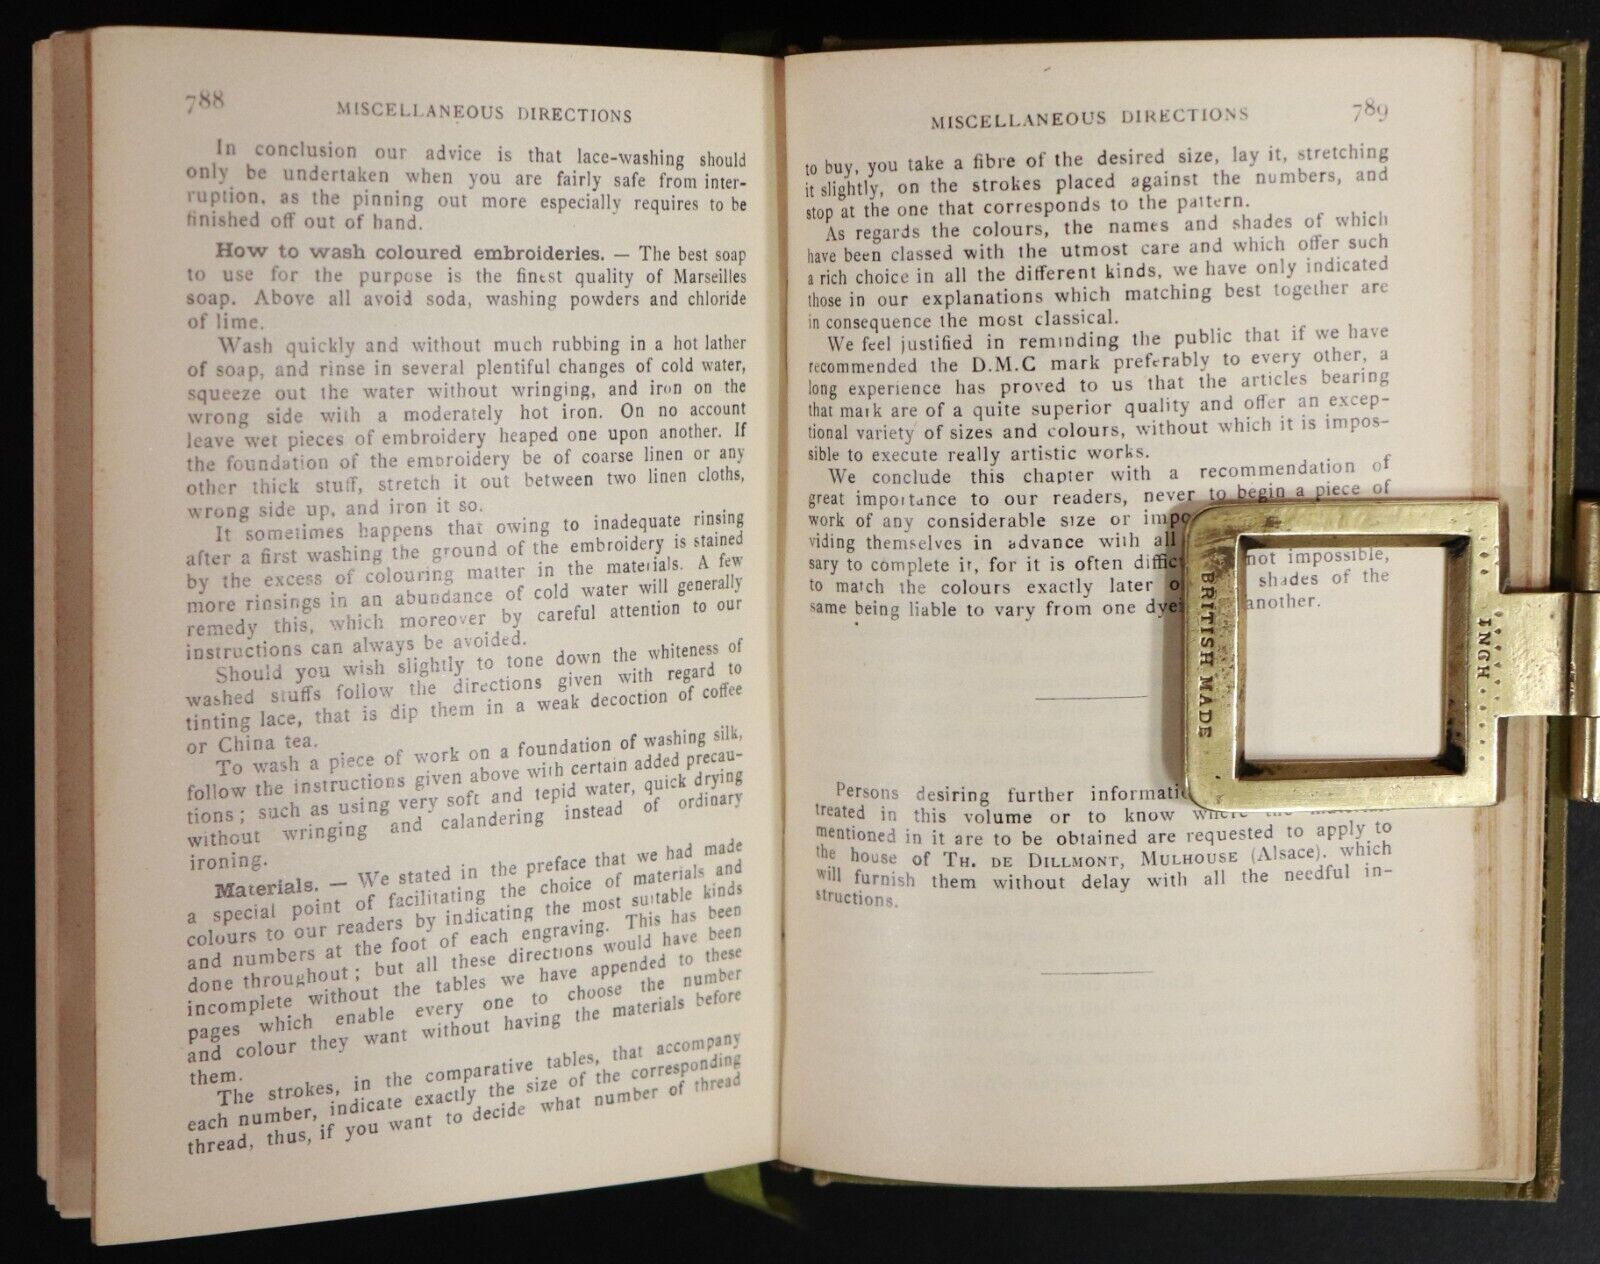 788
MISCELLANEOUS DIRECTIONS
In conclusion our advice is that lace-washing should
only be undertaken when you are fairly safe from inter-
ruption, as the pinning out more especially requires to be
finished off out of hand.
How to wash coloured embroideries. — The best soap
to use for the purpose is the finest quality of Marseilles
soap. Above all avoid soda, washing powders and chloride
of lime.
Wash quickly and without much rubbing in a hot lather
of soap, and rinse in several plentiful changes of cold water,
squeeze out the water without wringing, and iron on the
wrong side with a moderately hot iron. On no account
leave wet pieces of embroidery heaped one upon another. If
the foundation of the embroidery be of coarse linen or any
other thick stuff, stretch it out between two linen cloths,
wrong side up, and iron it so.
It sometimes happens that owing to inadequate rinsing
after a first washing the ground of the embroidery is stained
by the excess of colouring matter in the materials. A few
more rinsings in an abundance of cold water will generally
remedy this, which moreover by careful attention to our
instructions can always be avoided.
Should you wish slightly to tone down the whiteness of
washed stuffs follow the directions given with regard to
tinting lace, that is dip them in a weak decoction of coffee
or China tea.
To wash a piece of work on a foundation of washing silk,
follow the instructions given above with certain added precau-
tions; such as using very soft and tepid water, quick drying
without wringing and calandering instead of ordinary
ironing.
Materials. — We stated in the preface that we had made
a special point of facilitating the choice of materials and
colours to our readers by indicating the most suitable kinds
and numbers at the foot of each engraving. This has been
done throughout; but all these directions would have been
incomplete without the tables we have appended to these
pages which enable every one to choose the number
and colour they want without having the materials before
them.
The strokes, in the comparative tables, that accompany
each number, indicate exactly the size of the corresponding
thread, thus, if you want to decide what number of thread
MISCELLANEOUS DIRECTIONS
789
to buy, you take a fibre of the desired size, lay it, stretching
it slightly, on the strokes placed against the numbers, and
stop at the one that corresponds to the pattern.
As regards the colours, the names and shades of which
have been classed with the utmost care and which offer such
a rich choice in all the different kinds, we have only indicated
those in our explanations which matching best together are
in consequence the most classical.
We feel justified in reminding the public that if we have
recommended the D.M.C mark preferably to every other, a
long experience has proved to us that the articles bearing
that mark are of a quite superior quality and offer an excep-
tional variety of sizes and colours, without which it is impos-
sible to execute really artistic works.
We conclude this chapter with a recommendation of
great importance to our readers, never to begin a piece of
work of any considerable size or impo
viding themselves in advance with all
sary to complete it, for it is often diffic not impossible,
to match the colours exactly later o shades of the
same being liable to vary from one dye another.
Persons desiring further informati
treated in this volume or to know where the
mentioned in it are to be obtained are requested to apply to
the house of TH. DE DILLMONT, MULHOUSE (Alsace). which
will furnish them without delay with all the needful in-
structions.
BRITISH MADE
INGH